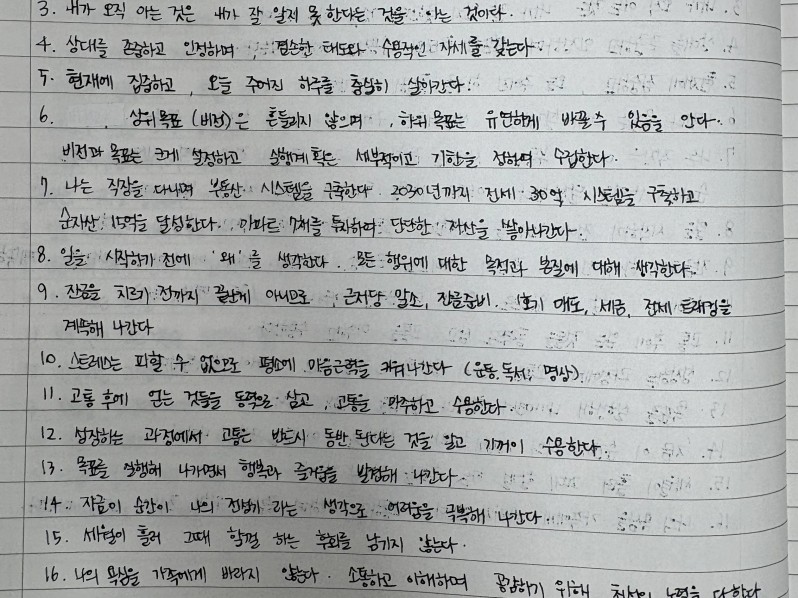 3. 내가 오직 아는 것은 내가 잘 알지 못한다는 것을 아는 것이다.
4. 상대를 존중하고 인정하며, 겸손한 태도와 수용적인 자세를 갖는다
5. 현재에 집중하고, 오늘 주어진 하루를 충실히 살아간다.
6. 상위목표(비전)은 흔들리지 않으며, 하위목표는 유연하게 바꿀 수 있음을 안다.
비전과 목표는 크게 설정하고 실행계획은 세부적이고 기한을 정하여 수립한다.
7. 나는 직장을 다니며 부동산 시스템을 구축한다. 2030년까지 전세 30억 시스템을 구축하고
순자산 15억을 달성한다. 아파트 7채를 투자하여 단단한 자산을 쌓아나간다.
8. 일을 시작하기 전에 '왜'를 생각한다. 모든 행위에 대한 목적과 본질에 대해 생각한다.
9. 잔금을 치르기 전까지 끝난게 아니므로, 근저당 말소, 잔금준비, 매도, 세금, 전세 트래킹을
계속해 나간다
10. 스트레스는 피할 수 없으므로 평소에 마음근력을 키워나간다 (운동, 독서, 명상)
11. 고통 후에 얻는 것들을 동력으로 삼고, 고통을 마주하고 수용한다.
12. 성장하는 과정에서 고통은 반드시 동반된다는 것을 알고 기꺼이 수용한다.
13. 목표를 실행해 나가면서 행복과 즐거움을 발견해 나간다
14. 지금이 순간이 나의 전성기 라는 생각으로 어려움을 극복해 나간다.
15. 세월이 흘러 그때 할걸 하는 후회를 남기지 않는다.
16. 나의 욕심을 가족에게 바라지 않는다. 소통하고 이해하며 공감하기 위해 최선의 노력을 다한다